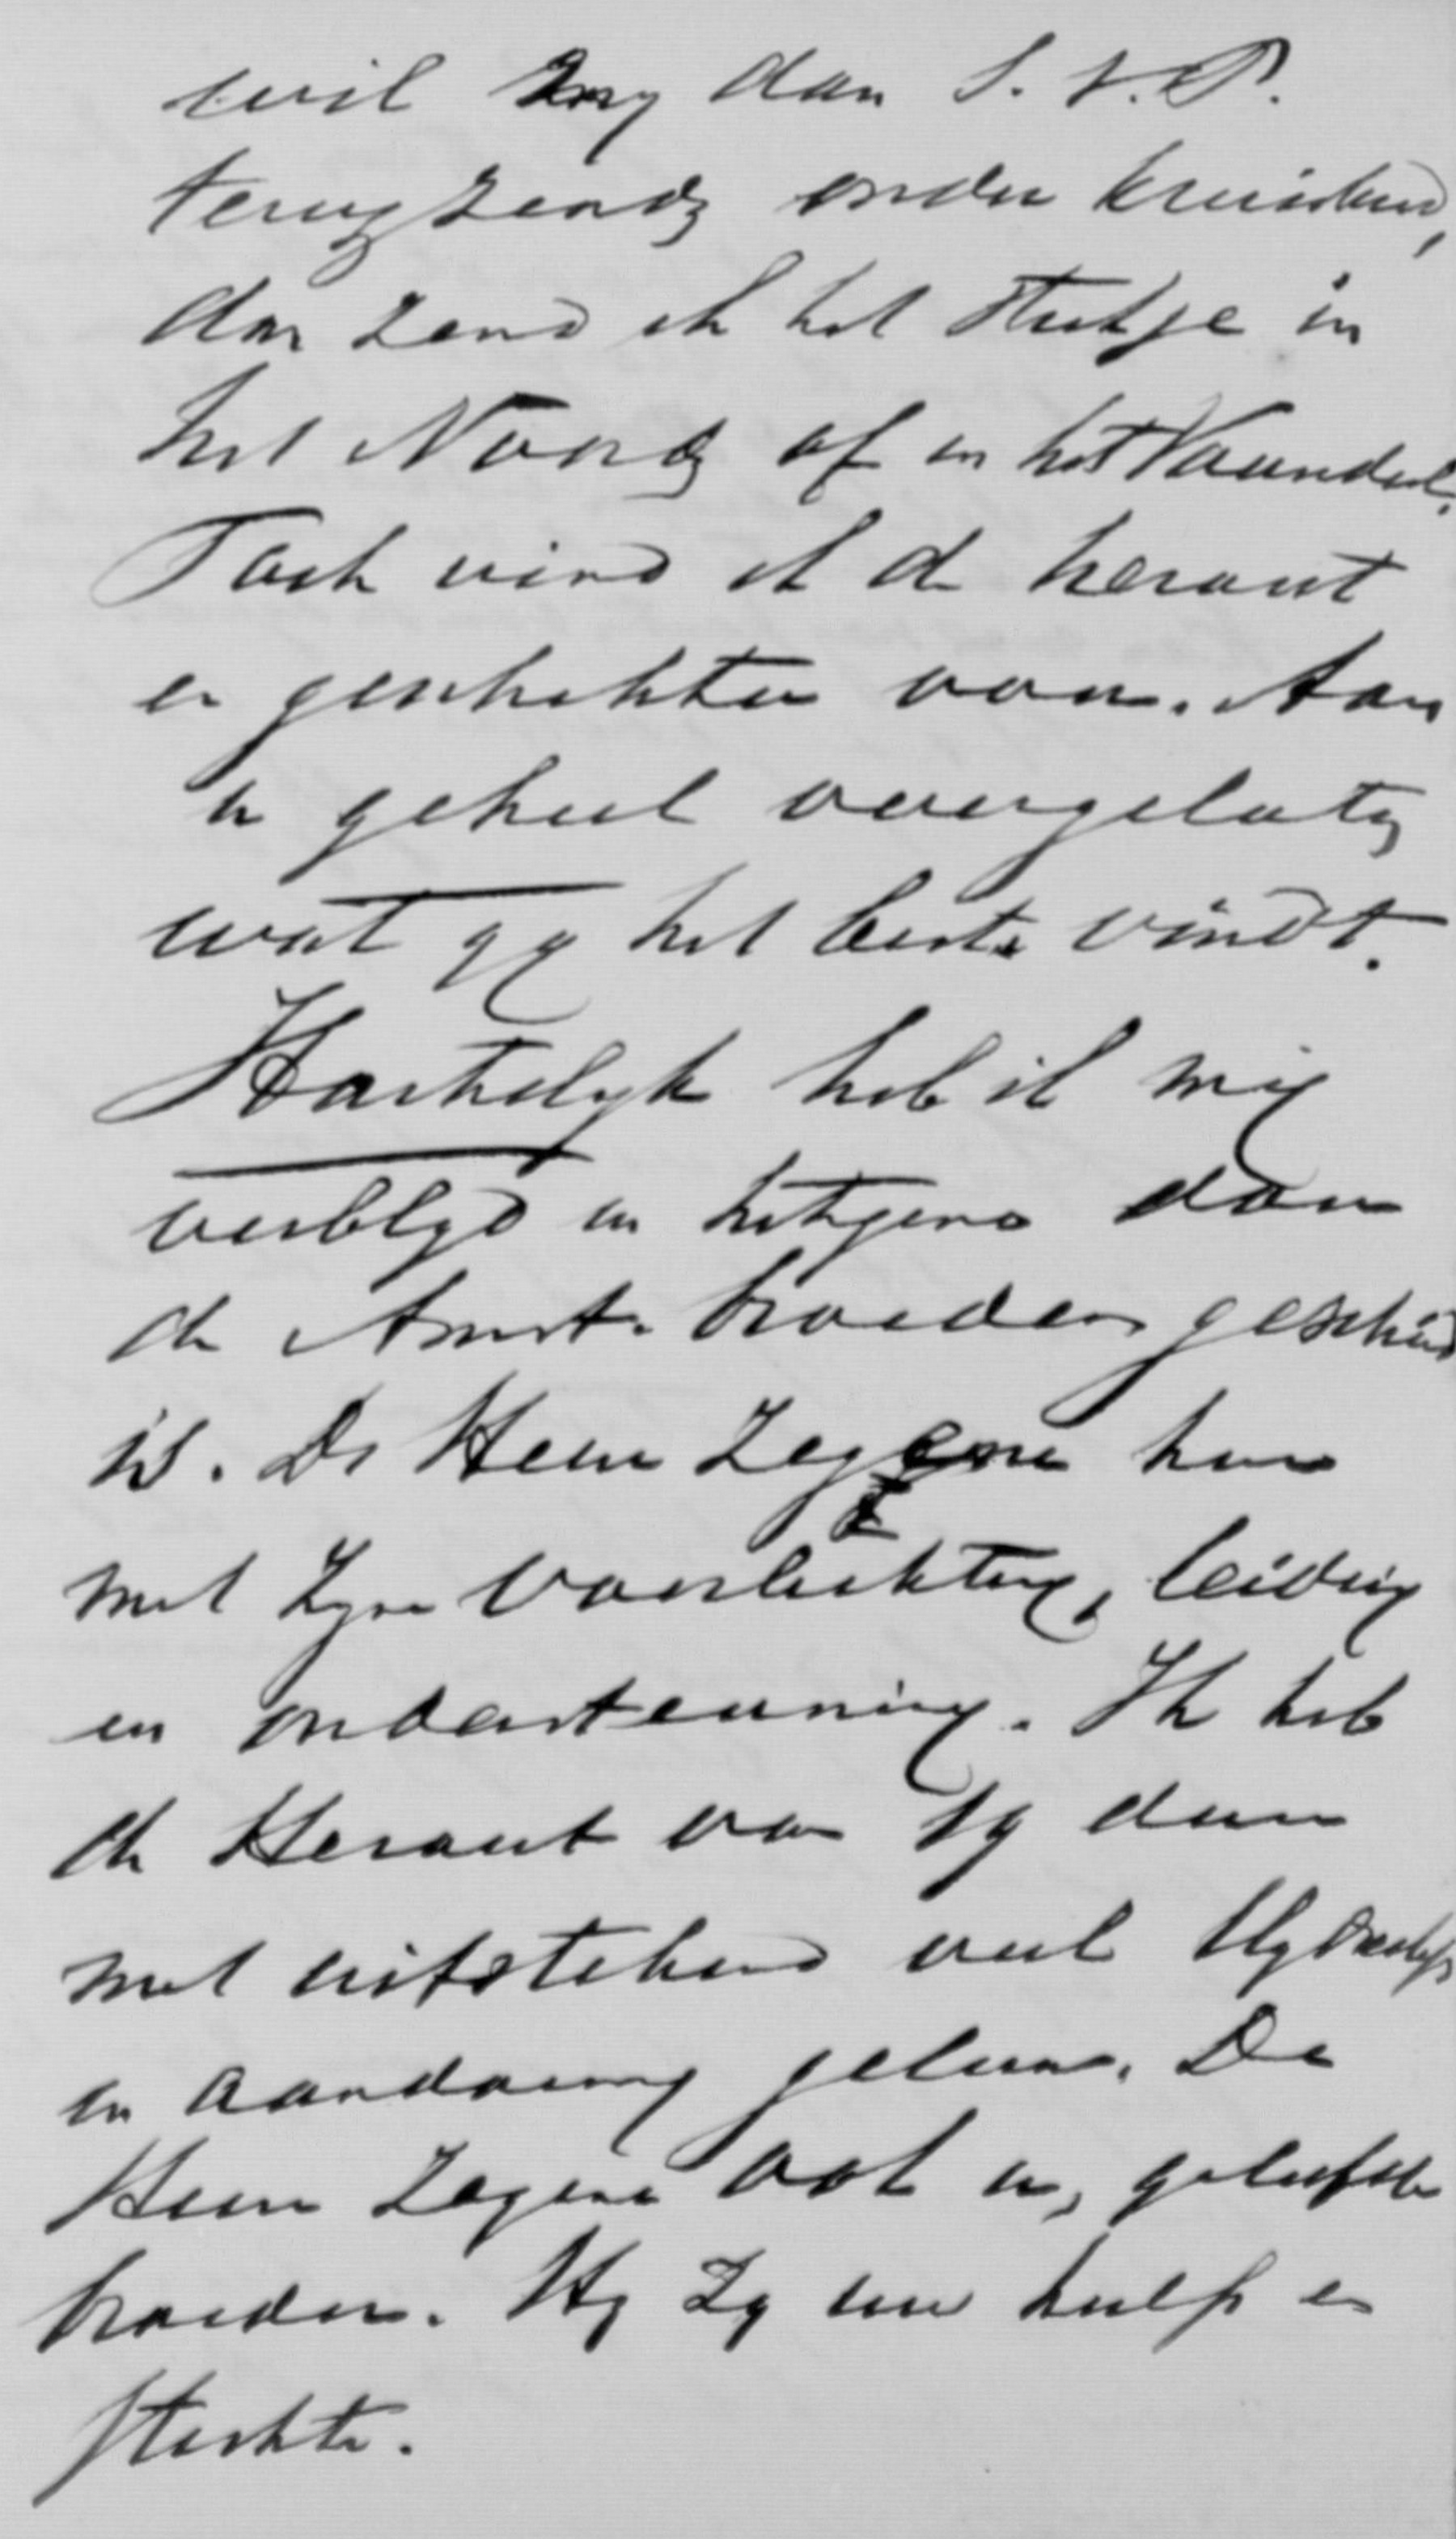 wil my dan S.V.P.
terugzenden onder kruisband,
dan zend ik het stukje in
het Noorden of in het Vaandel.
Toch vind ik de heraut
er geschikter voor. Aan
u geheel overgelaten
wat gy het beste vindt.
Hartelyk heb ik my
verblyd in hetgeen door
de Amst. broeders geschied
is. De Heere zegene hen
met Zyne voorlichting, leiding
en ondersteuning. Ik heb
de Heraut van
met uitstekend veel
en aandoening gelezen. De
Heere zegene ook u, geliefde
broeder. Hy zy uw hulp en
sterkte.